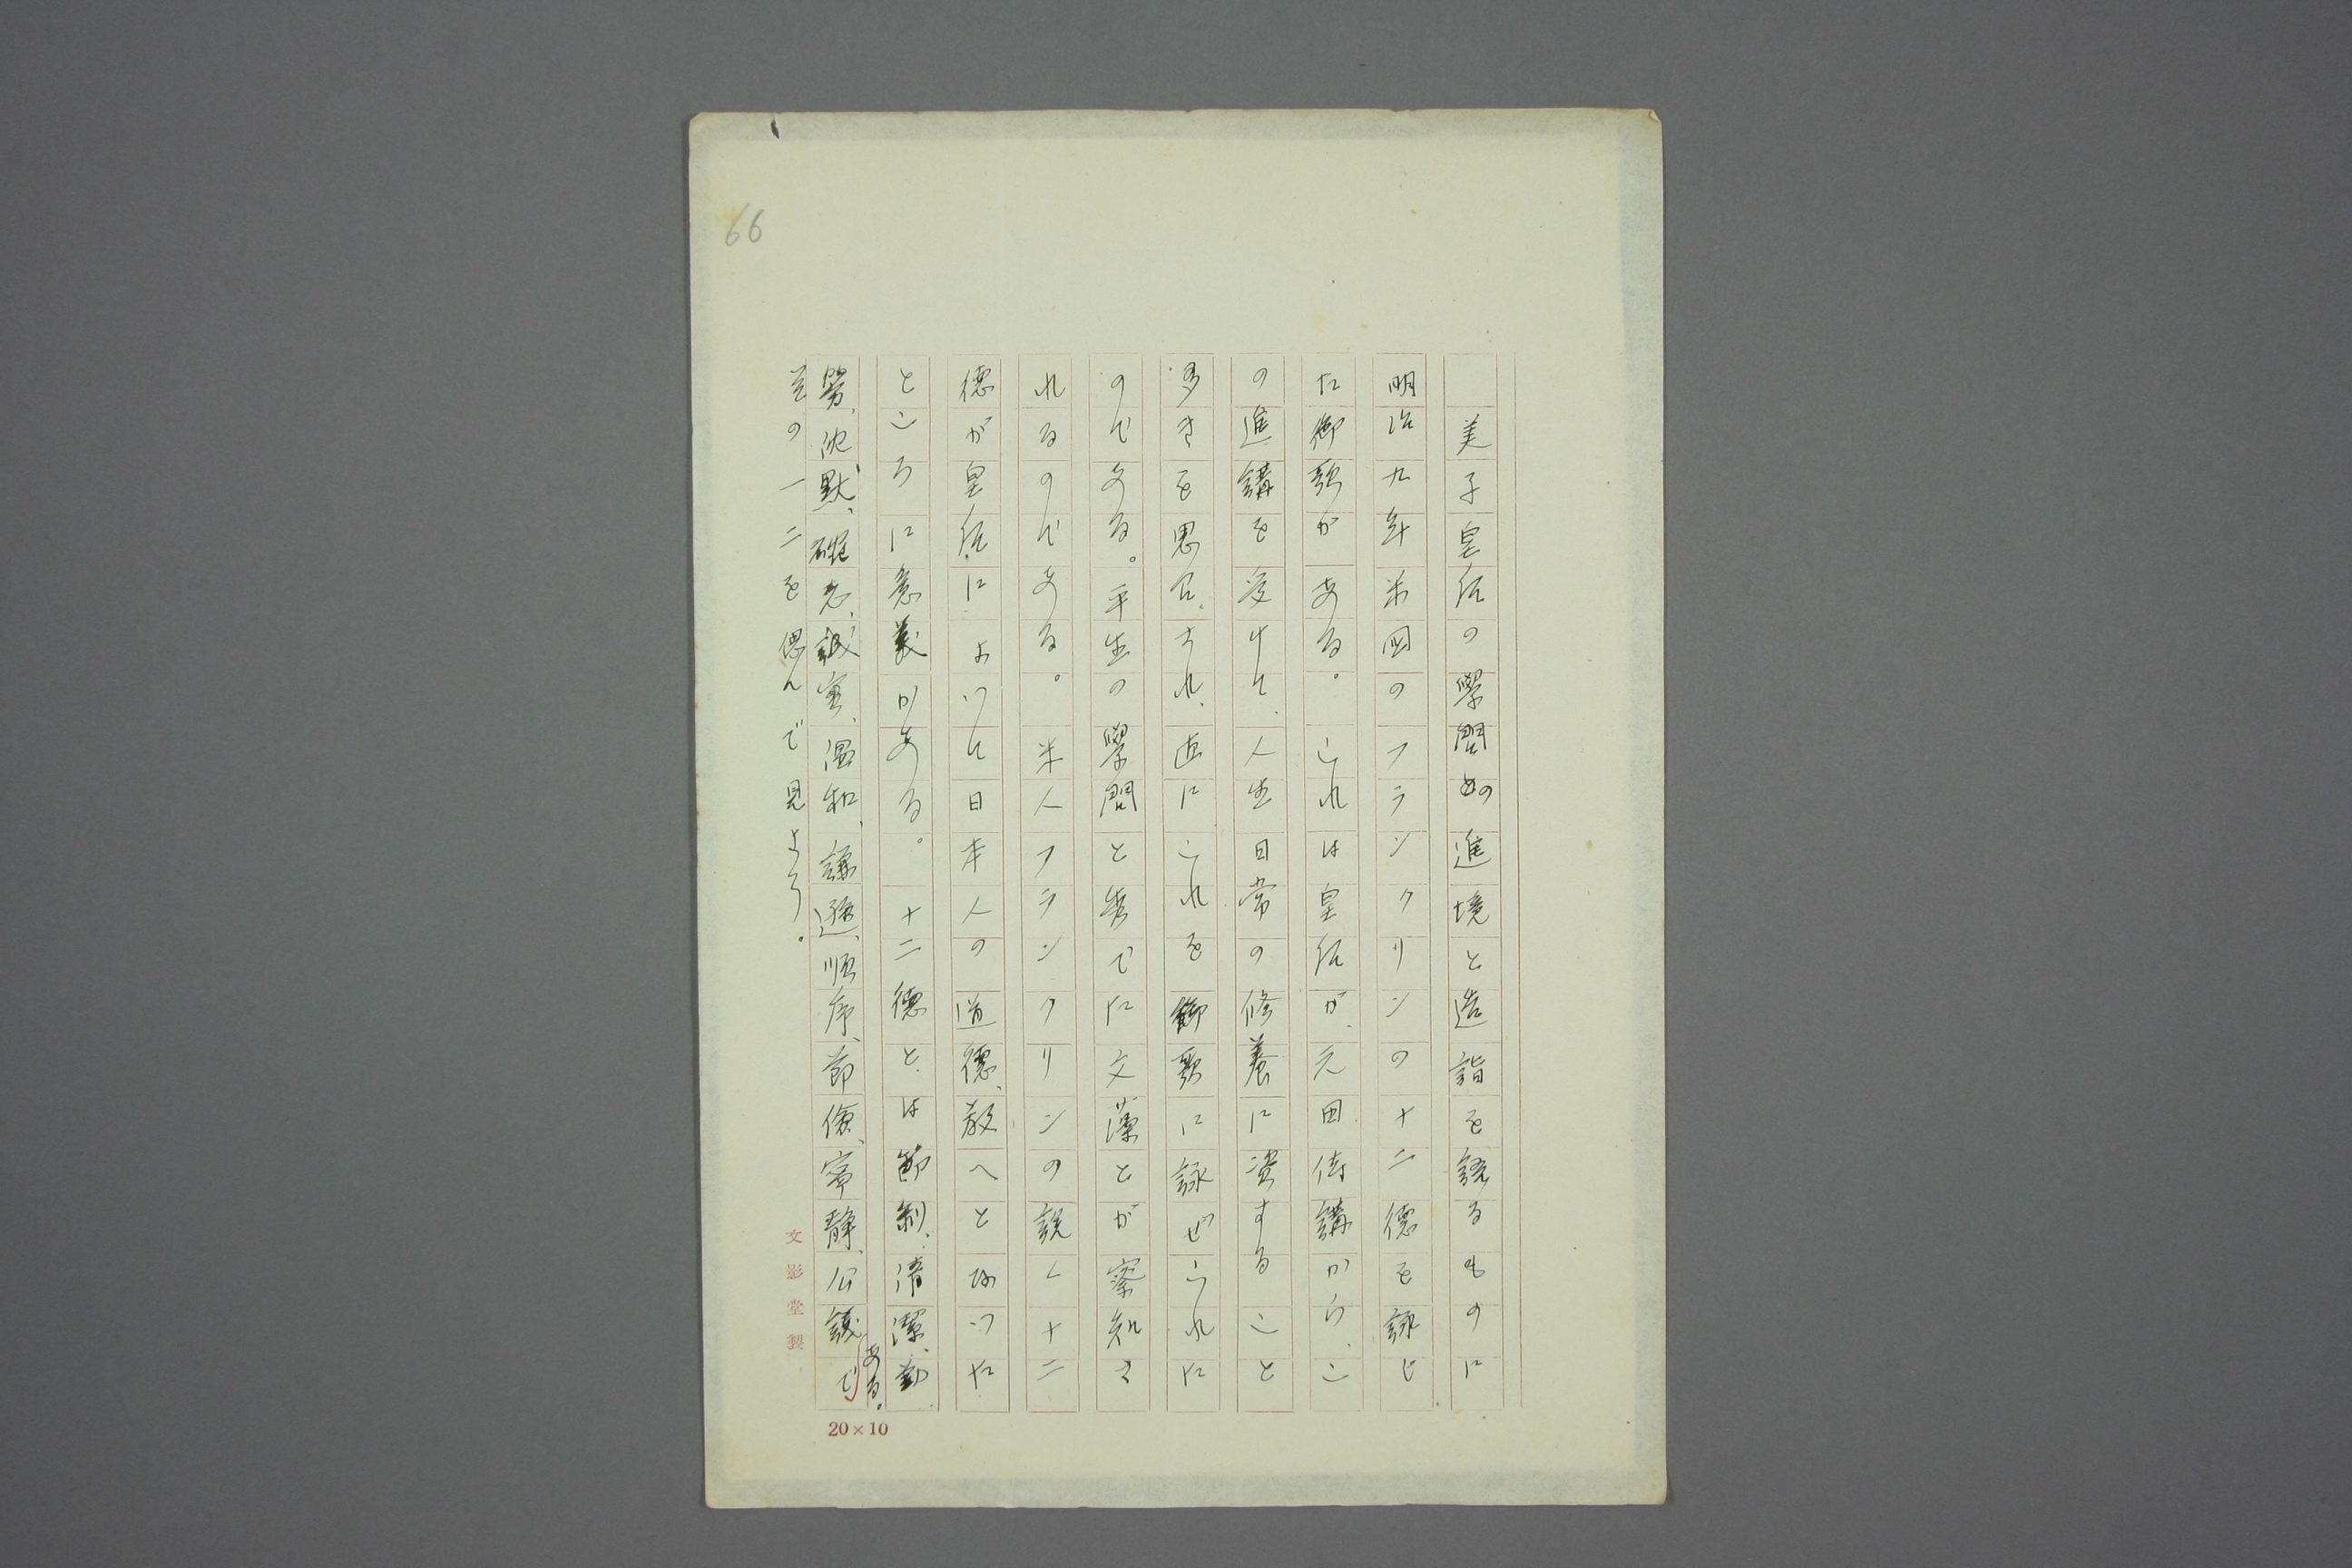 66
美子皇后の學問の進境と造詣を語るものに
明治九年米國のフランクリンの十二德を詠じ
た御歌がある。これは皇后が、元田侍講から、こ
の進講を受けて、人生日常の修養に資すること
多きを思召され、直にこれを御歌に詠ぜられた
のである。平生の學問と秀でた文藻とが察知さ
れるのである。米人フランクリンの說く十二
德が皇后によつて日本人の道德、教へとなつた
ところに意義がある。十二德とは節制、清潔、勤
勞、沈默、確志、誠實、溫和、謙遜、順序、節儉、寧靜、公義である。
その一二を偲んで見よう。
文影堂製
20×10